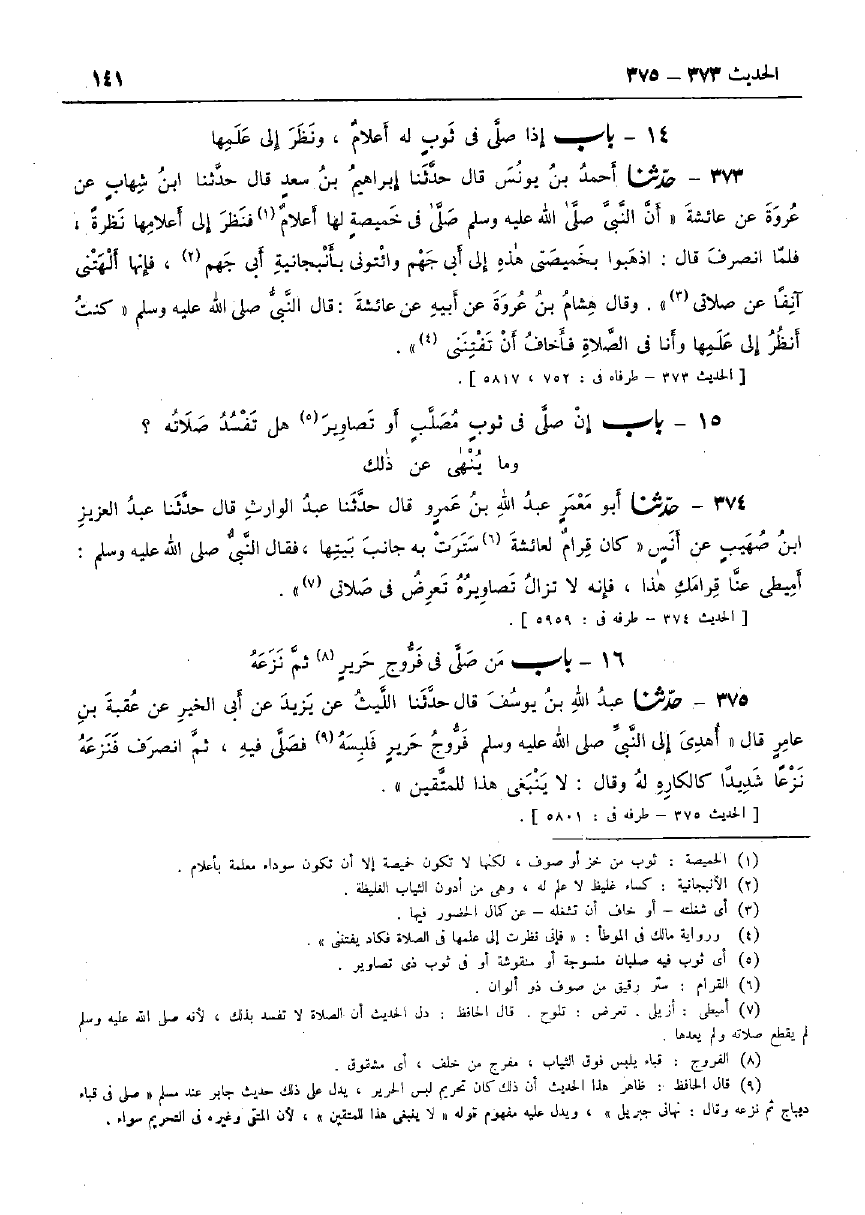 الحديث ٣٧٣ – ٣٧٥ ١٤١
١٤ – باب إذا صلَّى فى ثَوبٍ له أَعلامٌ ، ونَظَرَ إلى عَلَمِها
٣٧٣ – حدّثنا أحمدُ بنُ يونُسَ قال حدَّثَنا إبراهيمُ بنُ سعدٍ قال حدَّثنا ابنُ شِهابٍ عن
عُروَةَ عن عائشةَ « أنَّ النَّبىَّ صلَّىٰ الله عليه وسلم صَلَّىٰ فى خَميصةٍ لها أعلامٌ (١) فنَظرَ إلى أعلامِها نَظرةً ،
فلمَّا انصرفَ قال : اذهَبوا بخَميصَتى هٰذِهِ إلى أبى جَهْمٍ وائْتونى بأَنْبجانيةِ أبى جَهم (٢) ، فإنها أَلْهَتْنى
آنِفًا عن صلاتى (٣) » . وقال هِشامُ بنُ عُروَةَ عن أبيهِ عن عائشةَ : قال النَّبىُّ صلى الله عليه وسلم « كنتُ
أنظُرُ إلى عَلَمِها وأنا فى الصَّلاةِ فأَخافُ أَنْ تَفْتِنَنى (٤) » .
[ الحديث ٣٧٣ – طرفاه فى : ٧٥٢ ، ٥٨١٧ ] .
١٥ – باب إنْ صلَّى فى ثوبٍ مُصَلَّبٍ أو تَصاوِيرَ (٥) هل تَفْسُدُ صَلَاتُه ؟
وما يُنْهٰى عن ذٰلك
٣٧٤ – حدّثنا أبو مَعْمَرٍ عبدُ اللهِ بنُ عَمرو قال حدَّثَنا عبدُ الوارثِ قال حدَّثَنا عبدُ العزيزِ
ابنُ صُهَيبٍ عن أنَسٍ « كان قِرامٌ لعائشةَ (٦) سَتَرَتْ به جانبَ بَيتِها ، فقال النَّبىُّ صلى الله عليه وسلم :
أَمِيطى عنَّا قِرامَكِ هٰذا ، فإنه لا تزالُ تَصاويرُهُ تَعرِضُ فى صَلاتى (٧) » .
[ الحديث ٣٧٤ – طرفه فى : ٥٩٥٩ ] .
١٦ – باب مَن صَلَّى فى فَرُّوجِ حَريرٍ (٨) ثمَّ نَزَعَهُ
٣٧٥ – حدّثنا عبدُ اللهِ بنُ يوسُفَ قال حدَّثَنا اللَّيثُ عن يَزيدَ عن أبى الخيرِ عن عُقبةَ بنِ
عامرٍ قال « أُهدِىَ إلى النَّبىِّ صلى الله عليه وسلم فَرُّوجُ حَريرٍ فلَبِسَهُ (٩) فصَلَّى فيهِ ، ثمَّ انصرَف فنَزعَهُ
نَزْعًا شَدِيدًا كالكارِهِ لهُ وقال : لا يَنْبَغى هذا للمتَّقين » .
[ الحديث ٣٧٥ – طرفه فى : ٥٨٠١ ] .
(١) الخميصة : ثوب من خز أو صوف ، لكنها لا تكون خميصة إلا أن تكون سوداء معلمة بأعلام .
(٢) الأنبجانية : كساء غليظ لا علم له ، وهى من أدون الثياب الغليظة .
(٣) أى شغلته – أو خاف أن تشغله – عن كمال الحضور فيها .
(٤) ورواية مالك فى الموطأ : « فإنى نظرت إلى علمها فى الصلاة فكاد يفتننى » .
(٥) أى ثوب فيه صلبان منسوجة أو منقوشة أو فى ثوب ذى تصاوير .
(٦) القرام : ستر رقيق من صوف ذو ألوان .
(٧) أميطى : أزيلى . تعرض : تلوح . قال الحافظ : دل الحديث أن الصلاة لا تفسد بذلك ، لأنه صلى الله عليه وسلم
لم يقطع صلاته ولم يعدها .
(٨) الفروج : قباء يلبس فوق الثياب ، مفرج من خلف ، أى مشقوق .
(٩) قال الحافظ : ظاهر هذا الحديث أن ذلك كان تحريم لبس الحرير ، يدل على ذلك حديث جابر عند مسلم « صلى فى قباء
ديباج ثم نزعه وقال : نهانى جبريل » ، ويدل عليه مفهوم قوله « لا ينبغى هذا للمتقين » ، لأن المتقى وغيره فى التحريم سواء .